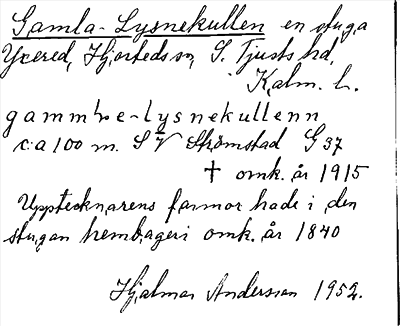 Gamla-Lysnekullen en stuga
Yxered, Hjorteds sn, S. Tjusts hd,
Kalm. l.
gammlve-lysnekullenn
c:a 100 m. SV Strömstad G 37
† omk. år 1915
Upptecknarens farmor hade i den
stugan hembageri omk. år 1840
Hjalmar Andersson 1952.